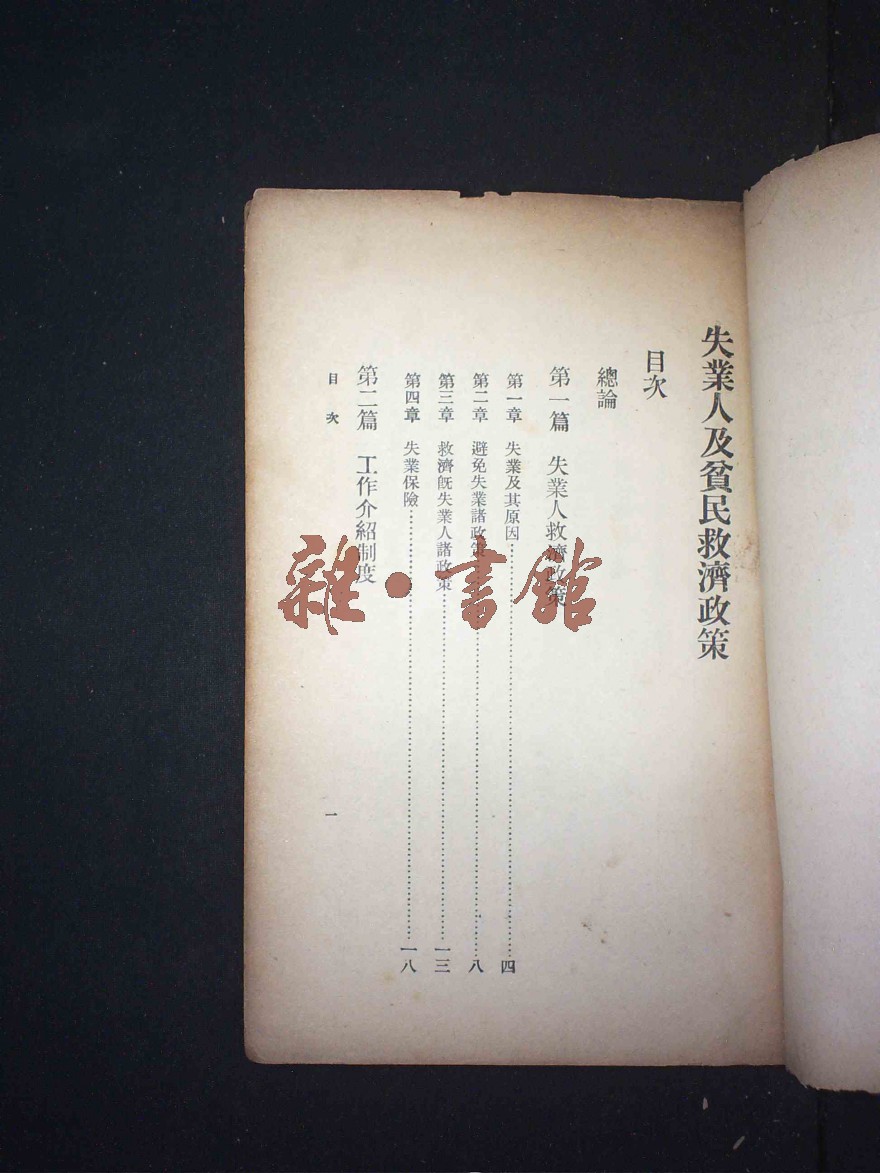 失業人及貧民救濟政策
目次
總論
第一篇 失業人救濟政策
第一章 失業及其原因……四
第二章 避免失業諸政策……八
第三章 救濟既失業人諸政策……一三
第四章 失業保險……一八
第二篇 工作介紹制度
目次
一
雜·書館